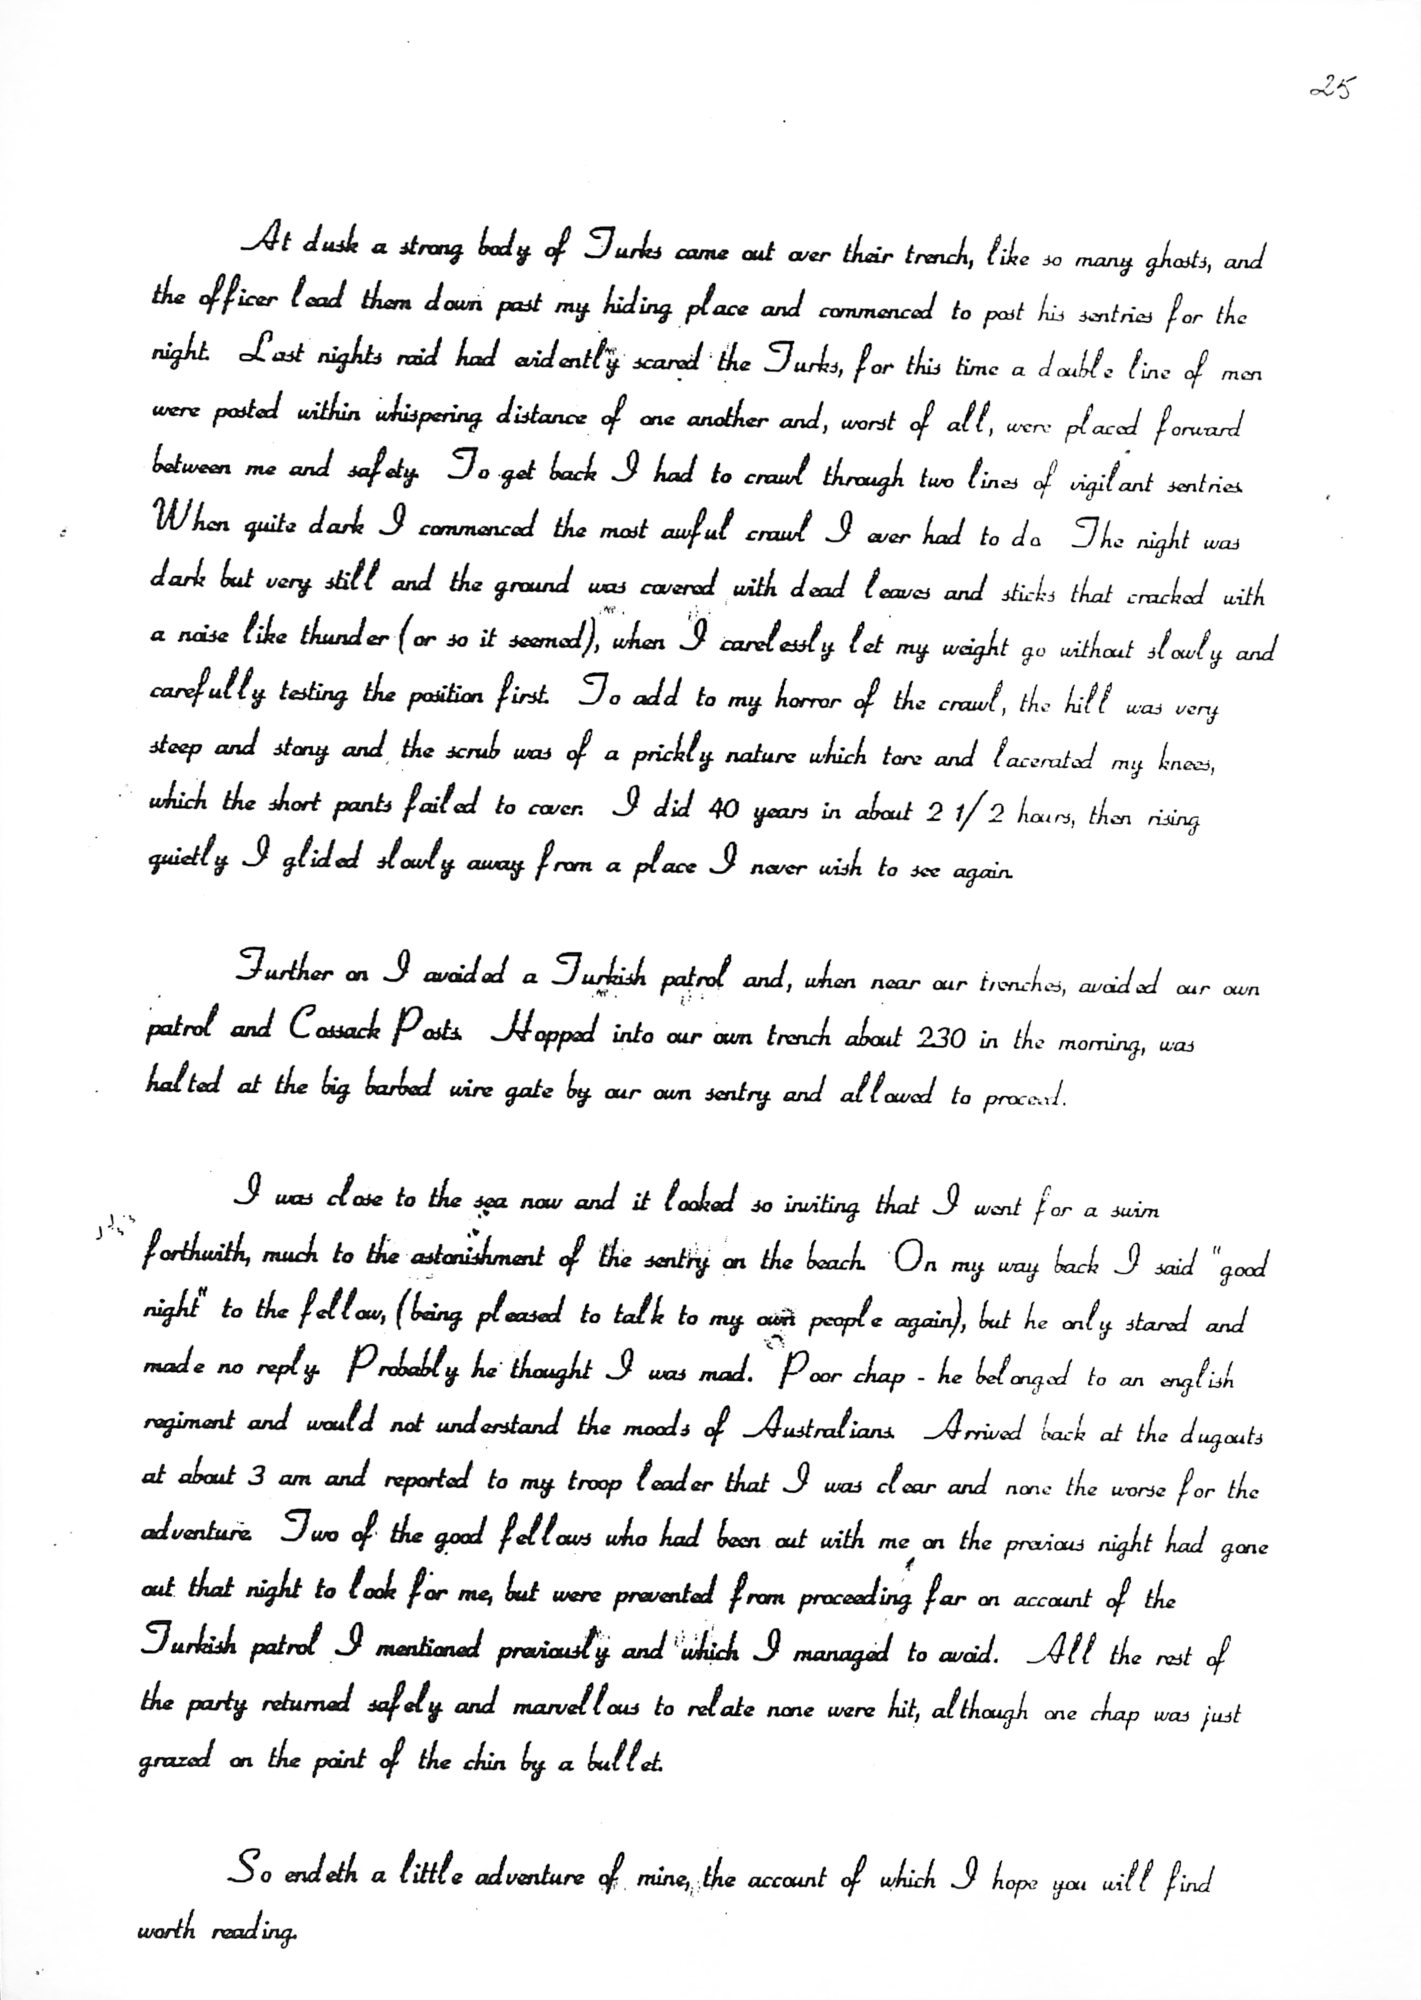 25
At dusk a strong body of Turks came out over their trench, like so many ghosts, and
the officer lead them down past my hiding place and commenced to post his sentries for the
night. Last nights raid had evidently scared the Turks, for this time a double line of men
were posted within whispering distance of one another and, worst of all, were placed forward
between me and safety. To get back I had to crawl through two lines of vigilant sentries.
When quite dark I commenced the most awful crawl I ever had to do. The night was
dark but very still and the ground was covered with dead leaves and sticks that cracked with
a noise like thunder (or so it seemed), when I carelessly let my weight go without slowly and
carefully testing the position first. To add to my horror of the crawl, the hill was very
steep and stony and the scrub was of a prickly nature which tore and lacerated my knees,
which the short pants failed to cover. I did 40 years in about 2 1/2 hours, then rising
quietly I glided slowly away from a place I never wish to see again.
Further on I avoided a Turkish patrol and, when near our trenches, avoided our own
patrol and Cossack Posts. Hopped into our own trench about 2.30 in the morning, was
halted at the big barbed wire gate by our own sentry and allowed to proceed.
I was close to the sea now and it looked so inviting that I went for a swim
forthwith, much to the astonishment of the sentry on the beach. On my way back I said "good
night" to the fellow, (being pleased to talk to my own people again), but he only stared and
made no reply. Probably he thought I was mad. Poor chap - he belonged to an english
regiment and would not understand the moods of Australians. Arrived back at the dugouts
at about 3 am and reported to my troop leader that I was clear and none the worse for the
adventure. Two of the good fellows who had been out with me on the previous night had gone
out that night to look for me, but were prevented from proceeding far on account of the
Turkish patrol I mentioned previously and which I managed to avoid. All the rest of
the party returned safely and marvellous to relate none were hit, although one chap was just
grazed on the point of the chin by a bullet.
So endeth a little adventure of mine, the account of which I hope you will find
worth reading.